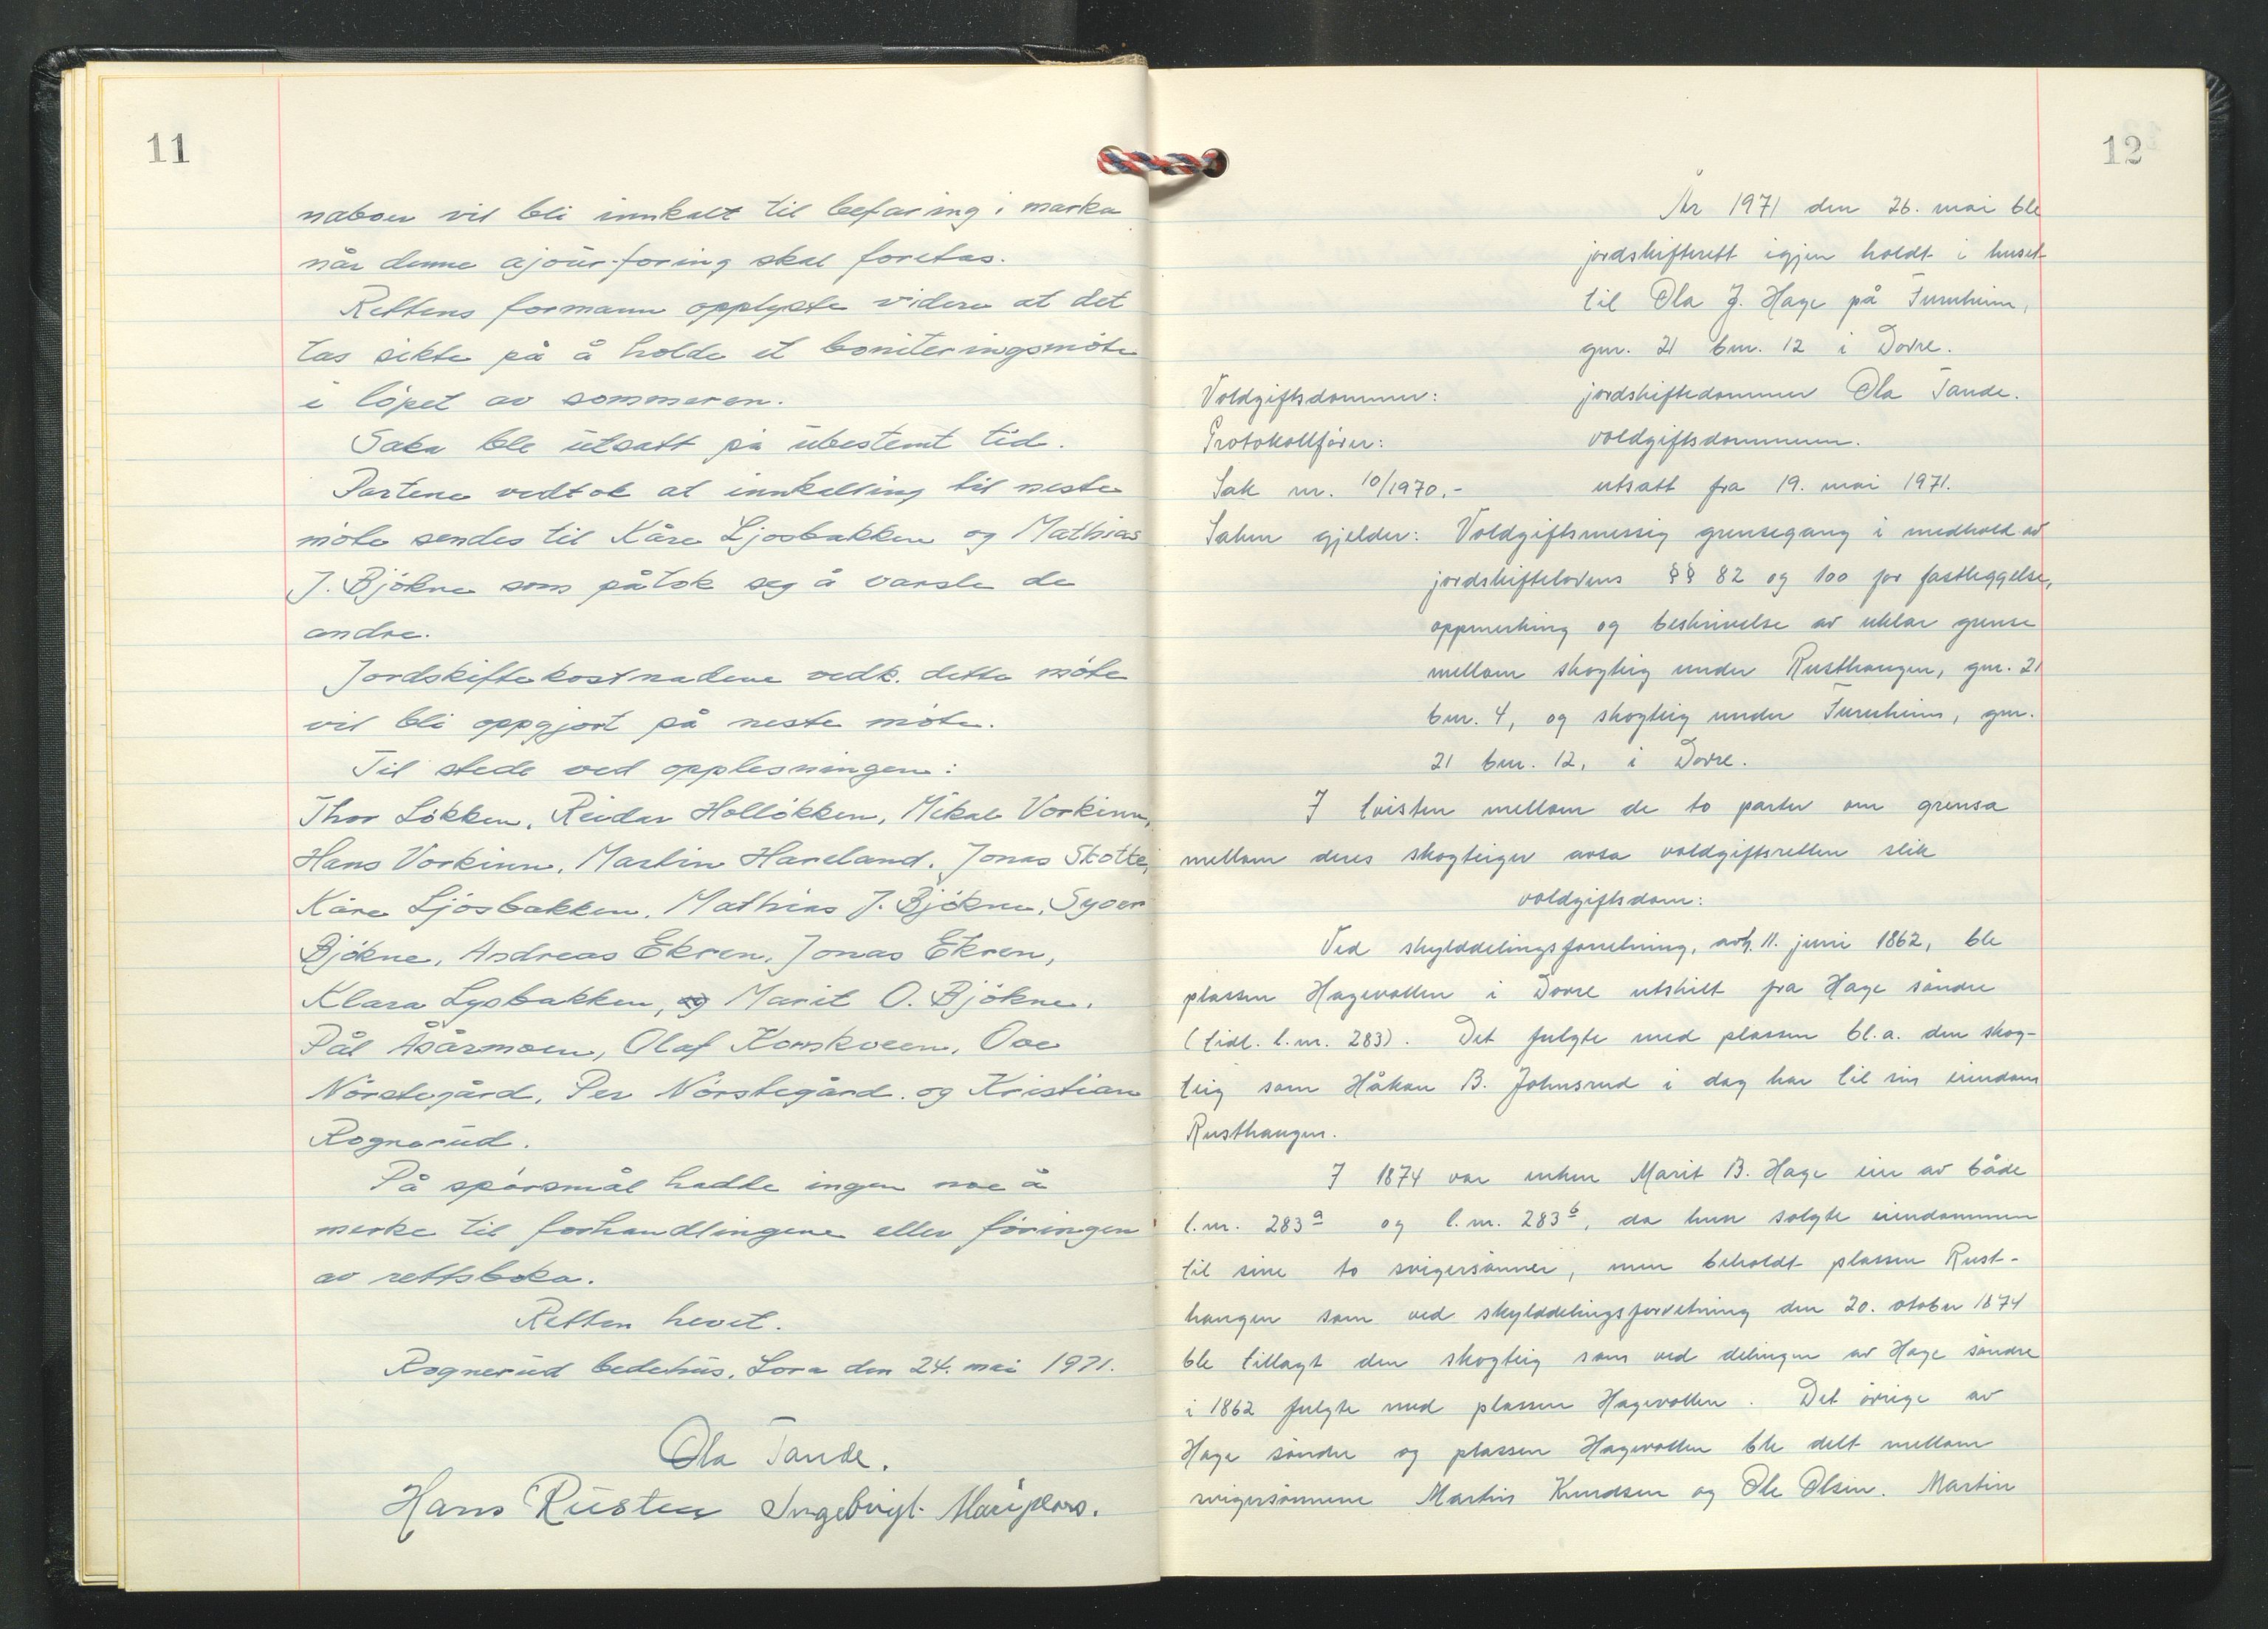 11
naboer vil bli innkalt til befaring i marka
når denne ajour-föring skal foretas.
Rettens formann opplyste videre at det
tas sikte på å holde et boniteringsmöte
i löpet av sommeren.
Saka ble utsatt på ubestemt tid.
Partene vedtok at innkalling til neste
möte sendes til Kåre Ljosbakken og Mathias
J. Bjökne som påtok seg å varsle de
andre.
Jordskiftekostnadene vedk. dette möte
vil bli oppgjort på neste möte.
Til stede ved opplesningen:
Thor Lökken, Reidar Hollökken, Mikal Vorkinn,
Hans Vorkinn, Martin Haveland, Jonas Skotte,
Kåre Ljosbakken, Mathias J. Bjökne, Syver
Bjökne, Andreas Ekren, Jonas Ekren,
Klara Lysbakken, og Marit O. Bjökne,
Pål Åsårmoen, Olaf Korskveen, Ove
Nörstegård, Per Nörstegård og Kristian
Rognerud.
På spörsmål hadde ingen noe å
merke til forhandlingene eller föringen
av rettsboka.
Retten hevet.
Rognerud bedehus, Lora den 24. mai 1971.
Ola Tande.
Hans Rusten Ingebrigt
12
År 1971 den 26. mai ble
jordskifterett igjen holdt i huset
til Ola J. Hage på Furuheim,
gnr. 21 bnr. 12 i Dovre.
Voldgiftsdommer: jordskiftedommer Ola Tande.
Protokollförer: voldgiftsdommeren.
Sak nr. 10/1970.- utsatt fra 19. mai 1971.
Saken gjelder: Voldgiftsmessig grensegang i medhold av
jordskiftelovens §§ 82 og 100 for fastleggelse,
oppmerking og beskrivelse av uklar grense
mellom skogteig under Rusthaugen, gnr. 21
bnr. 4, og skogteig under Furuheim, gnr.
21 bnr. 12, i Dovre.
I tvisten mellom de to parter om grensa
mellom deres skogteiger avsa voldgiftsretten slik
voldgiftsdom:
Ved skylddelingsforretning, avh. 11. juni 1862, ble
plassen Hagevollen i Dovre utskilt fra Hage söndre
(tidl. l.nr. 283). Det fulgte med plassen bl.a. den skog-
teig som Håkon B. Johnsrud i dag har til sin eiendom
Rusthaugen.
I 1874 var enken Marit B. Hage eier av både
l.nr. 283a og l.nr. 283b, da hun solgte eiendommen
til sine to svigersönner, men beholdt plassen Rust-
haugen som ved skylddelingsforretning den 20. otober 1874
ble tillagt den skogteig som ved delingen av Hage söndre
i 1862 fulgte med plassen Hagevollen. Det övrige av
Hage söndre og plassen Hagevollen ble delt mellom
svigersönnene Martin Knudsen og Ole Olsen. Martin